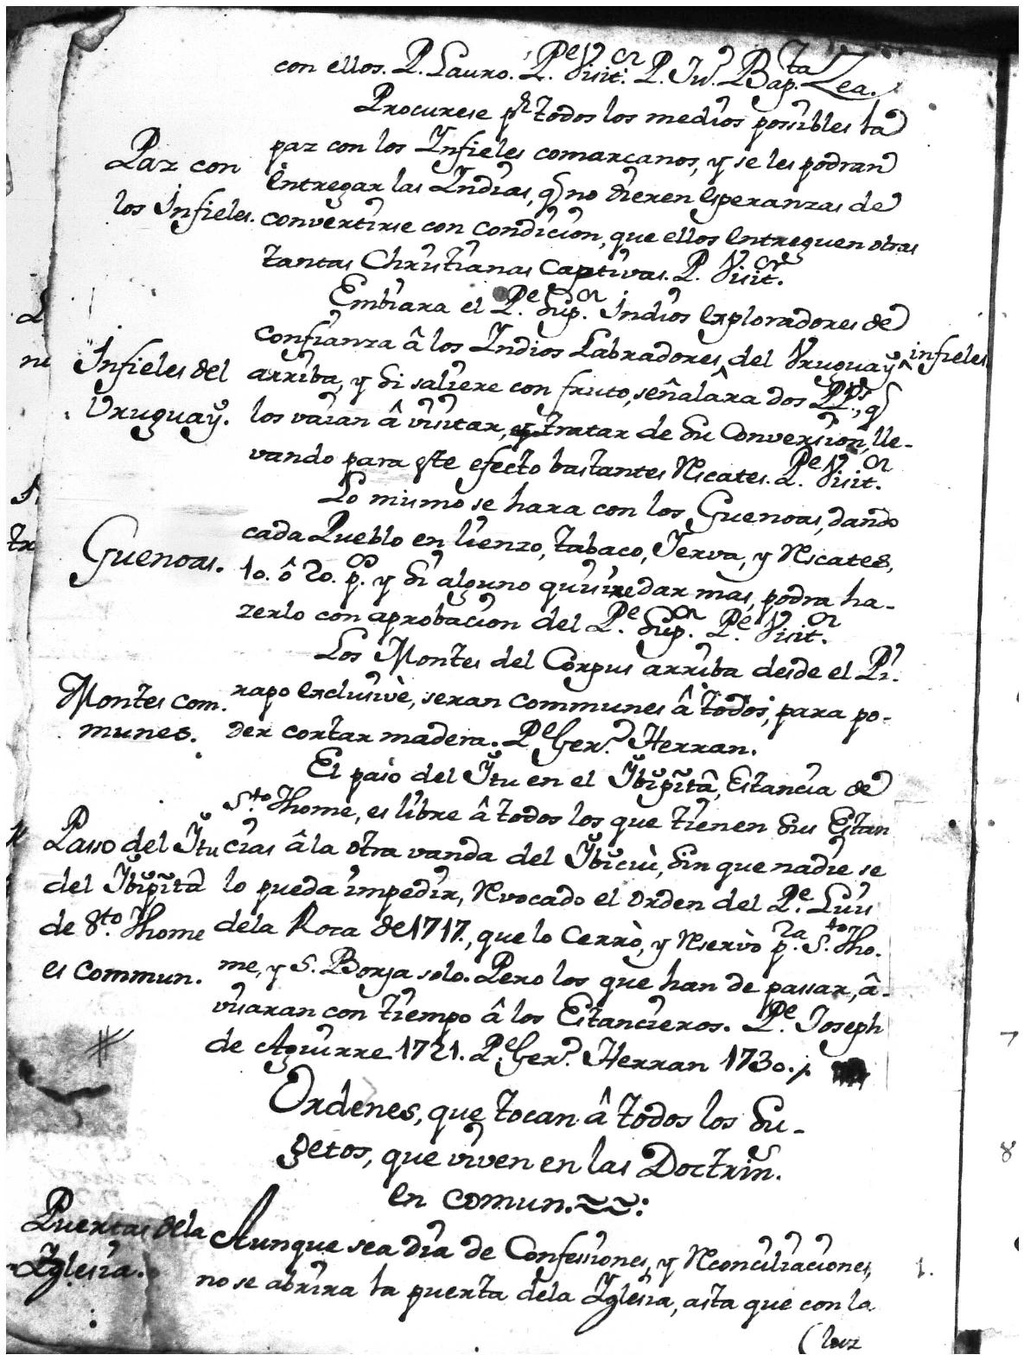 con ellos. P. Lauro. P.e Visit.or P. Ju.o Bap.ta Zea.
Procurese pr todos los medios possibles la
Paz con
los Infieles.
paz con los Infieles comarcanos, y se les podran
entregar las Indias, q no dieren esperanzas de
convertirse con condicion, que ellos entreguen otras
tantas Christianas captivas. P. Visit.or
Embiara el P.e Sup.or Indios exploradores de
confianza â los Indios Labradores, del Uruguaỹ ^ infieles
Infieles del
Uruguaỹ.
arriba, y si saliere con fruto, señalâra dos PP.es, q
los vaian â visitar, y tratar de su Conversion, lle-
vando para este efecto bastantes Rescates. P.e Visit.or
Lo mismo se hara con los Guenoas, dando
Guenoas.
cada Pueblo en lienzo, tabaco, Yerva, y Rescates,
10. ô 20. p.os y si alguno quisiere dar mas, podra ha-
zerlo con aprobacion del P.e Sup.or P.e Visit.or
Los Montes del Corpus arriba desde el Pi-
Montes com-
munes.
rapo exclusivè, seran communes â todos, para po-
der cortar madera. P.e Ger.o Herran.
El paso del Ĭtu en el Ĭbĭpĭtâ, Estancia de
S.to Thome, es libre â todos los que tienen sus Estan
Passo del Ĭtu
del Ĭbĭpĭtâ
de S.to Thome
es commun.
cias â la otra vanda del Ĭbĭcuì, sin que nadie se
lo pueda impedir, Revocado el orden del P.e Luis
dela Roca de 1717., que lo Cerrò, y Reservò p.a S.to Tho-
me, y S. Borja solo. Pero los que han de passar, â-
visaran con tiempo â los Estancieros. P.e Joseph
de Aguirre 1721. P.e Ger.o Herran 1730.
Ordenes, que tocan â todos los Su-
getos, que viven en las Doctrin.
en comun.≈≈:
Puertas dela
Iglesia.
Aunque sea dia de Confessiones, y Reconciliaciones,
1.
no se abrira la puerta dela Iglesia, asta que con la
(luz
7
8